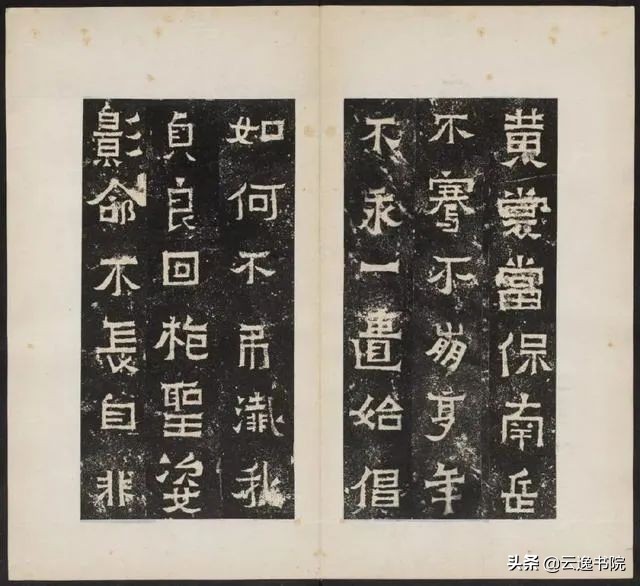 黄裳當保南岳
不騫不崩享年
不永一匱始倡
如何不弔殲我
貞良回抱聖姿
影命不長自非
头条 @云逸书院